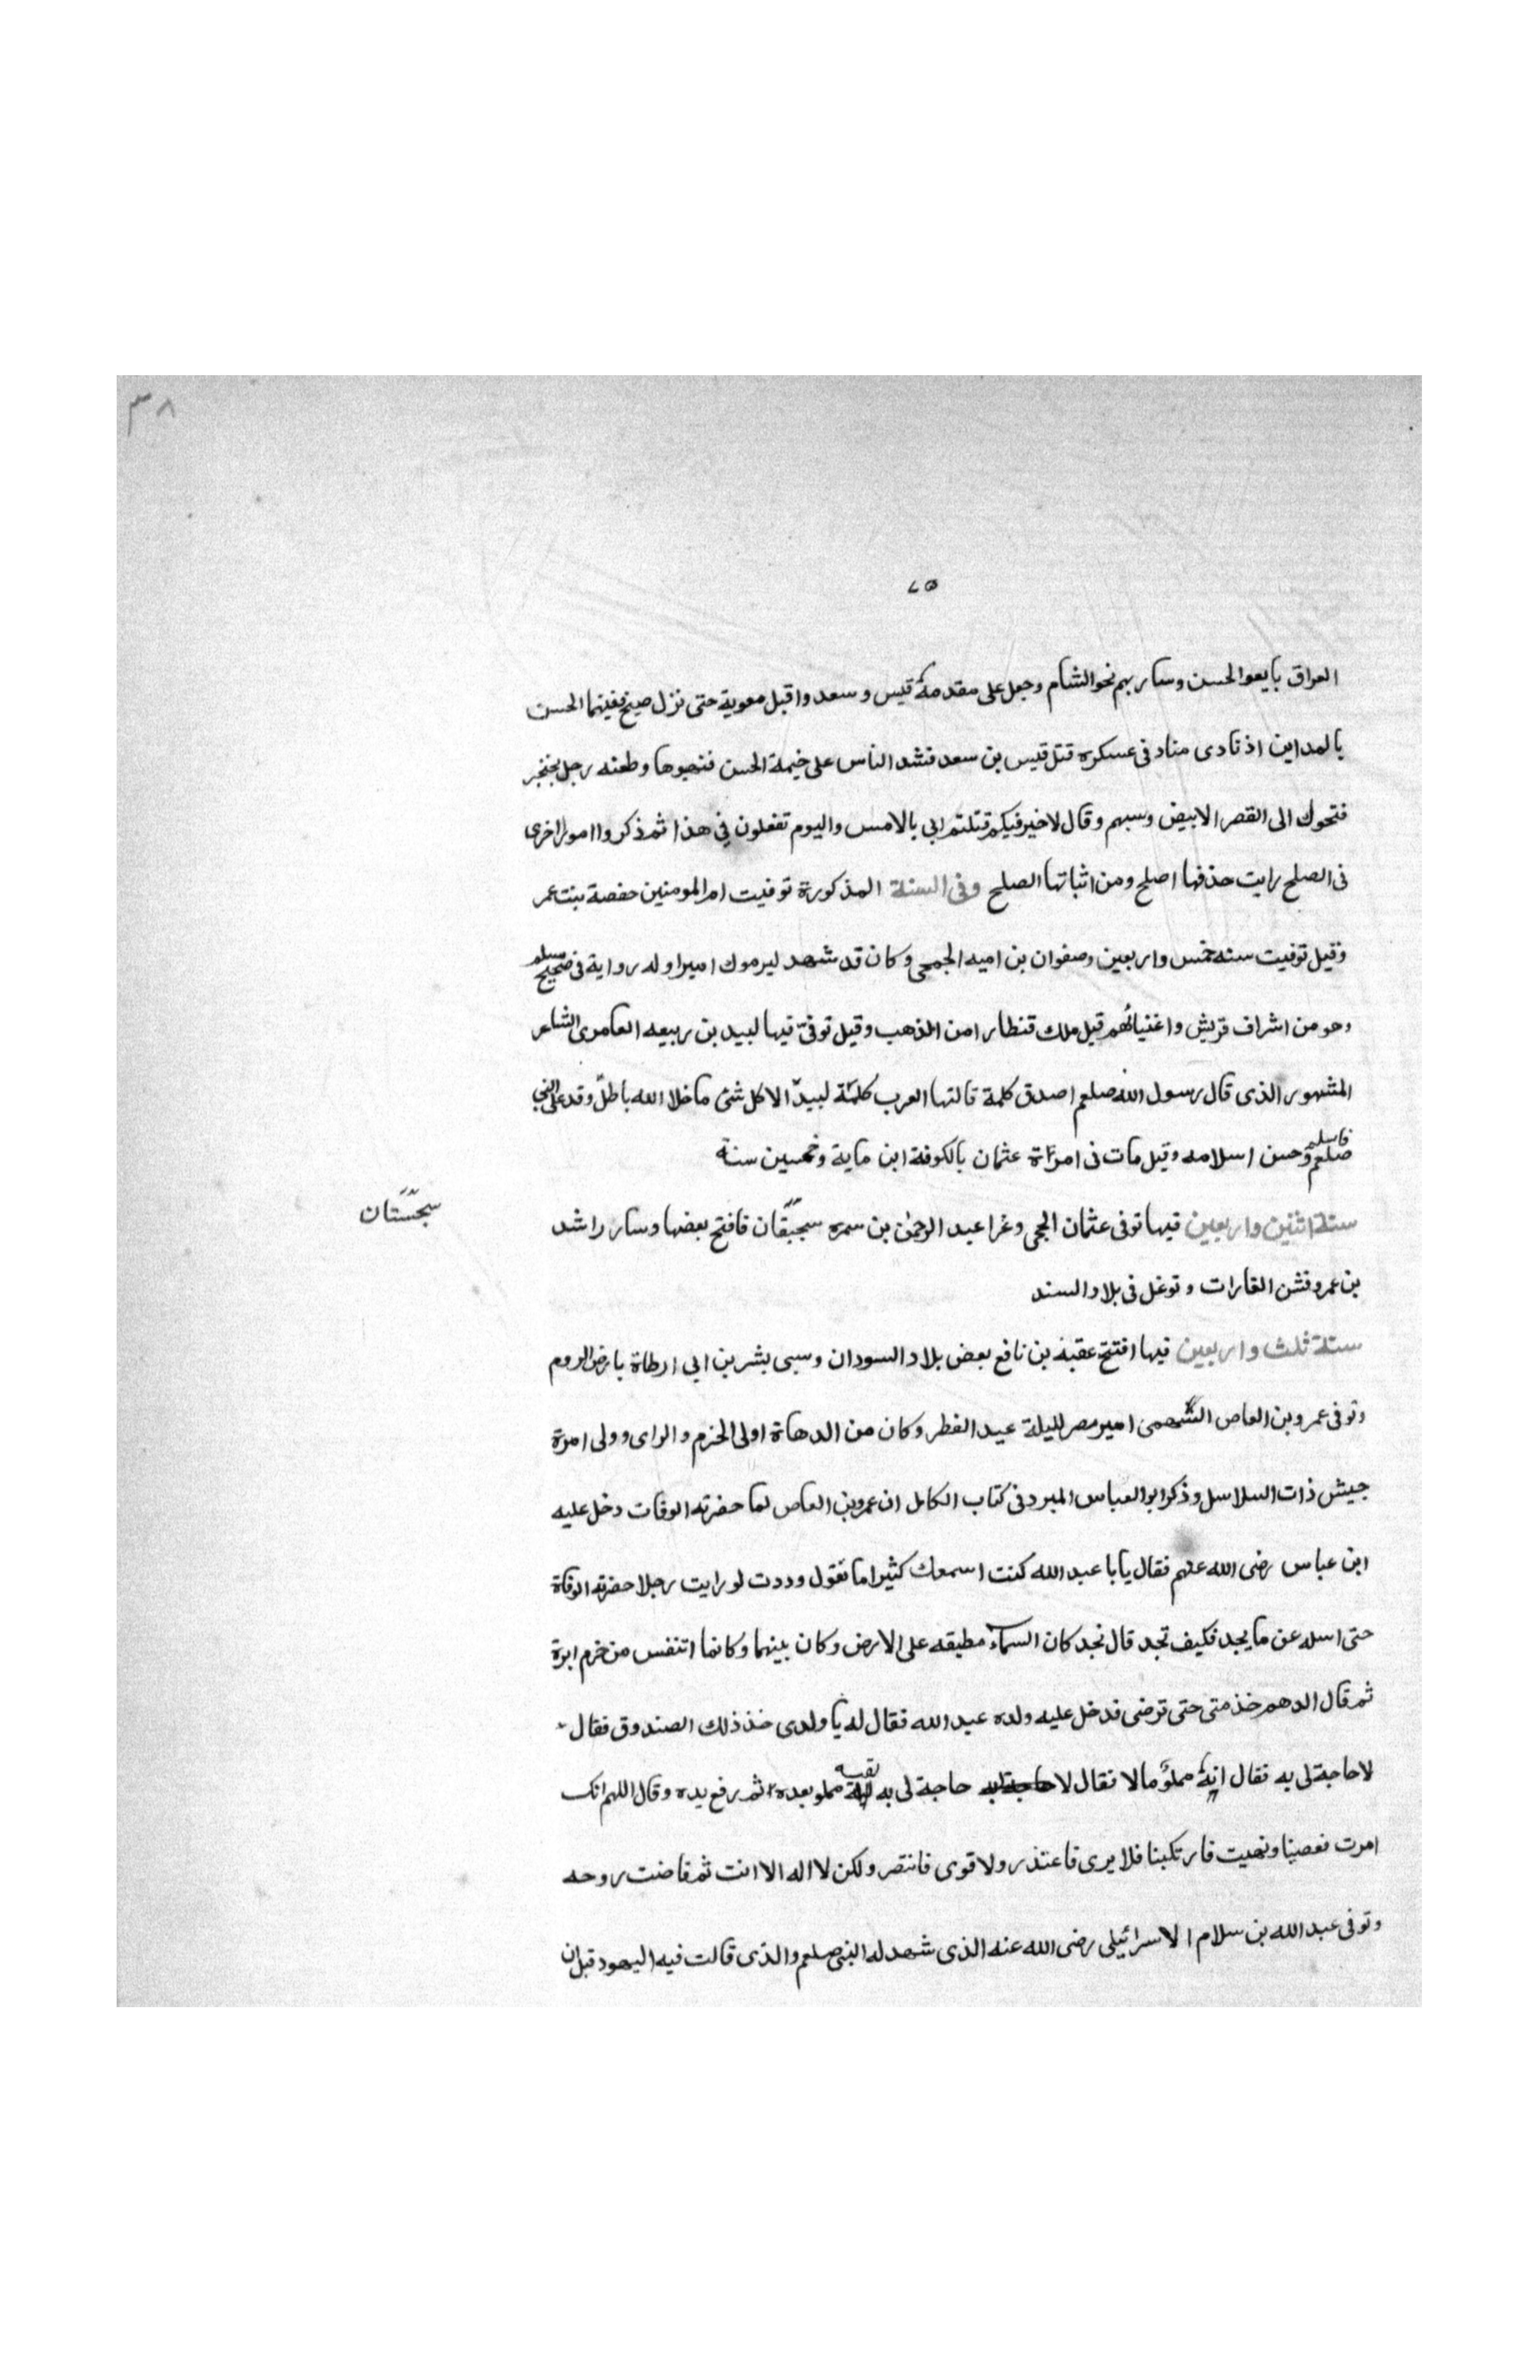 ٣٨
٧٥
العراق بايعوا الحسن وسار بهم نحو الشام وجعل على مقدمة قيس وسعد واقبل معوية حتى نزل فبينما الحسن
بالمداين اذ نادى مناد فى عسكره قتل قيس بن سعد فشد الناس على خيمة الحسن فنهبوها وطعنه رجل بخنجر
فتحول الى القصر الابيض وسبهم وقال لا خير فيكم قتلتم ابى بالامس واليوم تفعلون في هذا ثم ذكروا امورا اخرى
فى الصلح رايت حذفها اصلح ومن اثباتها الصلح وفى السنة المذكورة توفيت ام المومنين حفصة بنت عمر
وقيل توفيت سنه خمس واربعين وصفوان بن اميه الجمحى وكان قد شهد ليرموك اميرا وله رواية فى صحيح مسلم
وهو من اشراف قريش واغنيائهم قيل ملك قنطارا من الذهب وقيل توفى فيها لبيد بن ربيعه العامرى الشاعر
المشهور الذى قال رسول الله صلعم اصدق كلمة قالتها العرب كلمة لبيد الا كل شئ ما خلا الله باطل وقد على النبي
صلعم فاسلم وحسن اسلامه وقيل مات فى امراة عثمان بالكوفة ابن ماية وخمسين سنة
سنة اثنين واربعين فيها توفى عثمان الجحى وغزا عبد الرحمن بن سمره سجبقان فافتح بعضها وسار راشد
سجستان
بن عمرو فشن الغارات وتوغل فى بلاد السند
سنة ثلث واربعين فيها افتتح عقبة بن نافع بعض بلاد السودان وسبى بشر بن ابى ارطاة بارض الروم
وتوفى عمرو بن العاص السهمى امير مصر لليلة عيد الفطر وكان من الدهاة اولى الحزم والراى وولى امرة
جيش ذات السلاسل وذكر ابو العباس المبرد فى كتاب الكامل ان عمرو بن العاص لما حضرته الوفات دخل عليه
ابن عباس رضى الله عنهم فقال يابا عبد الله كنت اسمعك كثيرا ما تقول وددت لو رايت رجلا حضرته الوفاة
حتى اسله عن ما يجد فكيف تجد قال نجد كان السماء مطبقه على الارض وكان بينهما وكانما اتنفس من خرم ابرة
ثم قال الدهم خذ متى حتى ترضى فدخل عليه ولده عبد الله فقال له يا ولدى خذ ذلك الصندوق فقال
لا حاجة لى به فقال انه مملؤ مالا فقال لا حاجة لى به حاجة لى به مملو بعده ثم رفع يده وقال اللهم انك
امرت فعصينا ونهيت فارتكبنا فلا برى فاعتذر ولا قوى فانتصر ولكن لا اله الا انت ثم فاضت روحه
وتوفى عبد الله بن سلام الاسرائيلى رضى الله عنه الذى شهد له النبى صلعم والذى قالت فيه اليهود قبل ان